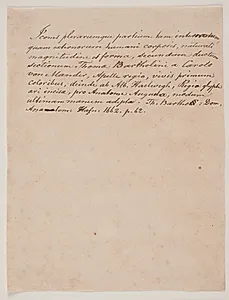 Icones plerarumque partium tam internarum
quam externarum humani corporis, naturali
magnitudine et forma, secundum
sectionum Thomæ Bartholini a Carolo
von Mander, Apelle regio, vivis primum
coloribus, deinde ab Alb. Haelwegh, Regio glyph
incisæ, pro Anatome Augusta, nondum
ultimam manum adeptæ. Th. Barthol: Dom.
Anatom: Hafn: 1662. p. 62.